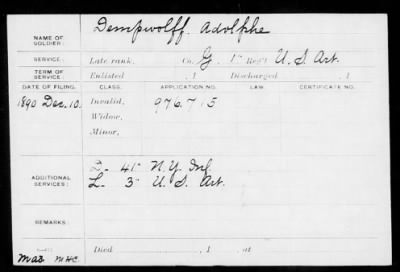 Dempwolff. Adolphe
NAME OF SOLDIER:
SERVICE: Late rank, Co. G. 1" Reg't U.S. Art.
TERM OF SERVICE: Enlisted , 1 Discharged , 1
DATE OF FILING. CLASS. APPLICATION NO. LAW. CERTIFICATE NO.
1890 Dec. 10. Invalid, 976.715
Widow,
Minor,
D- 41" N.Y. Inf
ADDITIONAL SERVICES: L- 3" U.S. Art.
REMARKS:
Died , 1 , at